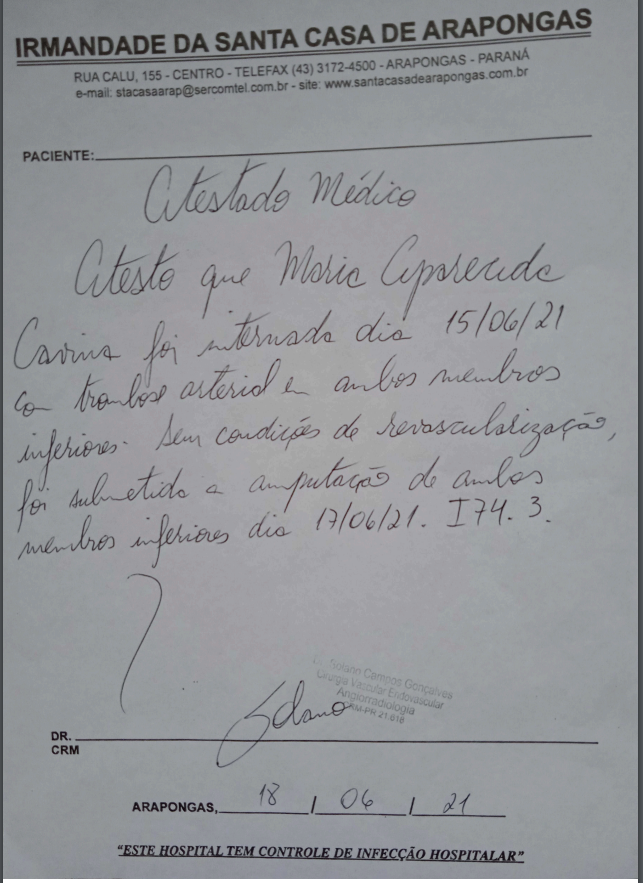 IRMANDADE DA SANTA CASA DE ARAPONGAS
RUA CALU, 155 - CENTRO - TELEFAX (43) 3172-4500 - ARAPONGAS - PARANÁ
e-mail: stacasaarap@sercomtel.com.br - site: www.santacasadearapongas.com.br
PACIENTE:
Atestado Médico
Atesto que Maria Aparecida
Cavina foi internada dia 15/06/21
com trombose arterial em ambos membros
inferiores. Sem condições de revascularização,
foi submetida a amputação de ambos
membros inferiores dia 17/06/21. I74.3.
Solano Campos Gonçalves
Cirurgia Vascular Endovascular
Angiorradiologia
CRM-PR 21.618
Solano
DR.
CRM
ARAPONGAS, 18 / 06 / 21
"ESTE HOSPITAL TEM CONTROLE DE INFECÇÃO HOSPITALAR"